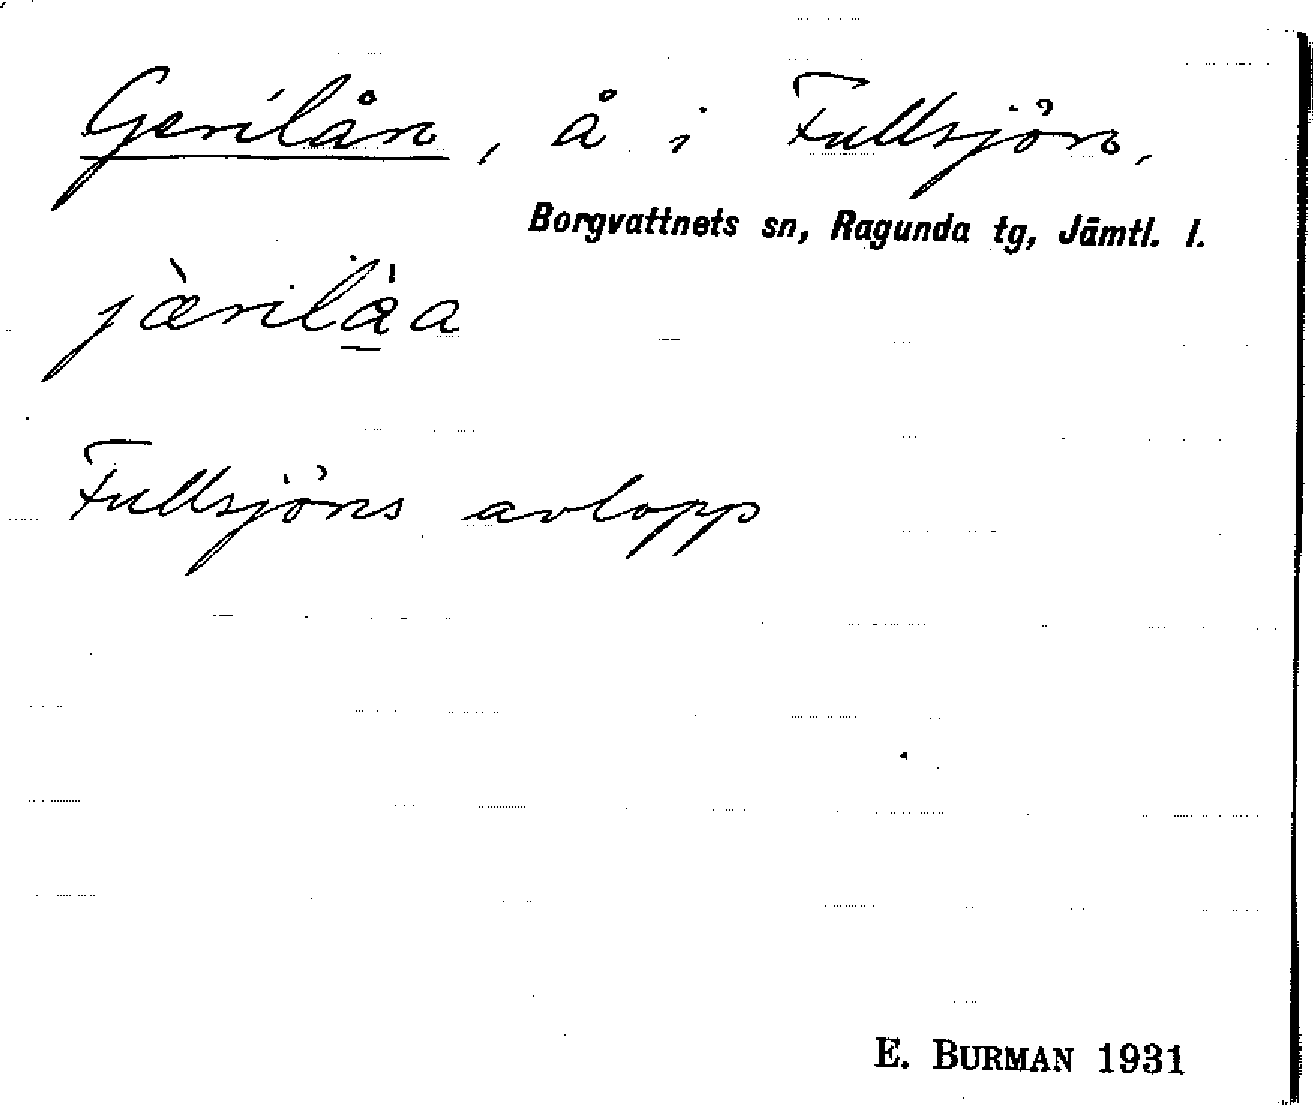 Gerilån, å i Fullsjön,
Borgvattnets sn, Ragunda tg, Jämtl. l.
jæ̀rilå̀a
Fullsjöns avlopp
E. BURMAN 1931